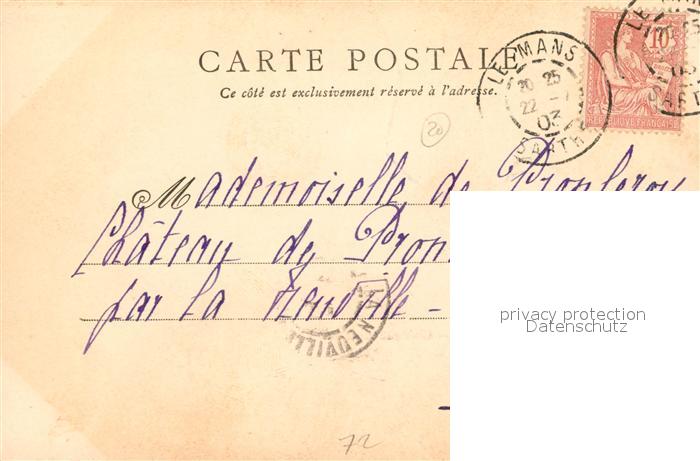 CARTE POSTALE
Ce côté est exclusivement réservé à l'adresse.
LE MANS
20 25
22
03
SARTHE
10
RÉPUBLIQUE FRANÇAISE
20
Mademoiselle de Pronleroy
Château de Pron
par la Neuville -
LA NEUVILL
privacy protection
Datenschutz
72